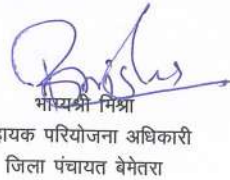 भाग्यश्री मिश्रा
हायक परियोजना अधिकारी
जिला पंचायत बेमेतरा